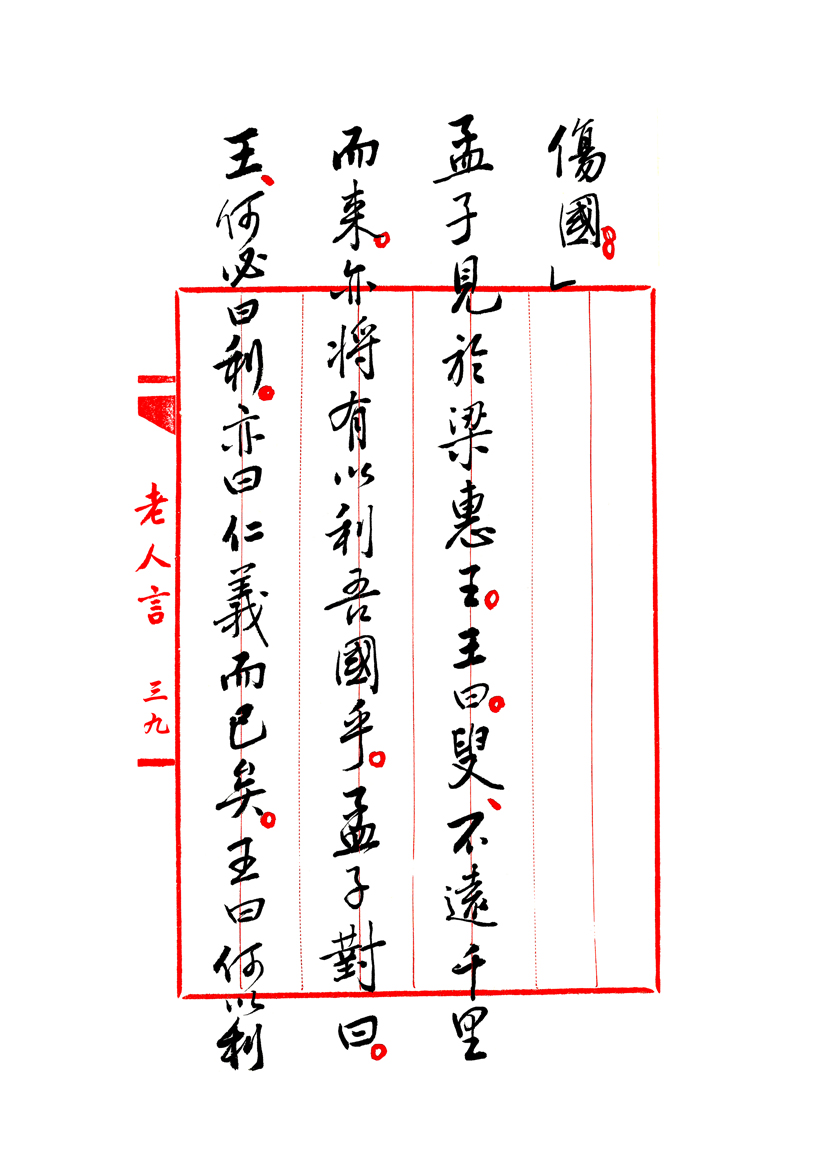 傷國。。」
孟子見於梁惠王。王曰。叟、不遠千里
而来。亦将有以利吾國乎。孟子對曰。
王、何必曰利。亦曰仁義而已矣。王曰何以利
老人言 三九